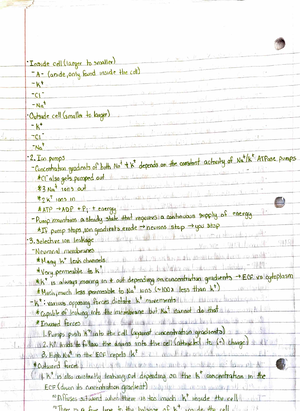 -Inside cell (larger to smaller)
-A- (anide, only found inside the cell)
-K+
-Cl-
-Na+
-Outside cell (smaller to larger)
-K+
-Cl-
-Na+
-2. Ion pumps
-Concentration gradients of both Na+ & K+ depends on the constant activity of Na+/K+ ATPase pumps
*Cl- also gets pumped out
*3 Na+ ions out
*2 K+ ions in
*ATP → ADP + Pi + energy
-Pump maintains a steady state that requires a continuous supply of energy
*If pump stops, ion gradients erode → neurons stop → you stop
-3. Selective ion leakage
-Neuronal membranes
*Many K+ leak channels
*Very permeable to K+
*K+ is always moving in & out depending on concentration gradients → ECF vs cytoplasm
*Mainly much less permeable to Na+ (~100x less than K+)
-K+: various opposing forces dictate K+ movements
*Capable of leaking into the membrane but Na+ cannot do that
*Inward forces
1. Pumps push K+ into the cell (against concentration gradients)
2. K+ tends to follow the anions into the cell (attracted to (+) charge)
3. High Na+ in the ECF repels K+
*Outward forces
1. K+ is also continually leaking out depending on the K+ concentration in the
ECF (down its concentration gradient)
*Diffuses outward when there is too much K+ inside the cell
*There is a fine line in the balance of K+ inside the cell